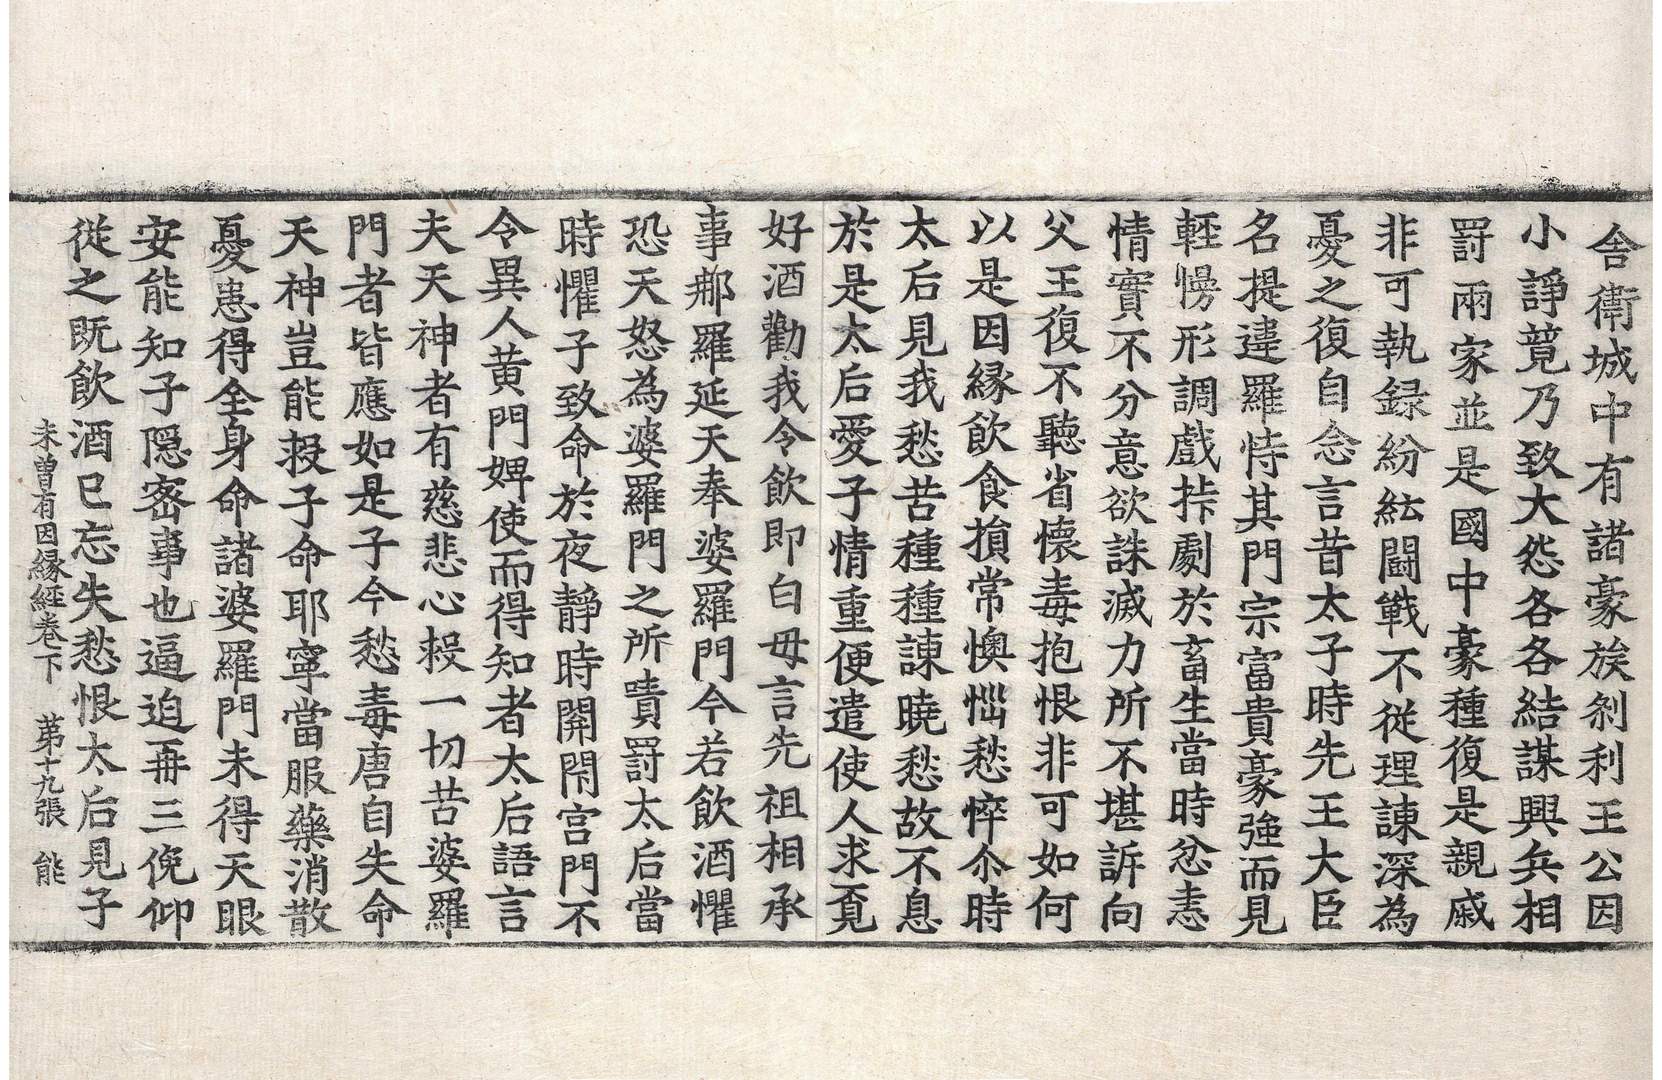 舎衛城中有諸豪族刹利王公因
小諍競乃致大怨各各結謀興兵相
罸兩家並是國中豪種復是親戚
非可執録紛紜鬪戰不従理諫深為
憂之復自念言昔太子時先王大臣
名提違羅恃其門宗富貴豪強而見
輕慢形調戲挊劇於畜生當時忿恚
情實不分意欲誅滅力所不堪訴向
父王復不聽省懐毒抱恨非可如何
以是因縁飲食損常懊惱愁悴尒時
太后見我愁苦種種諫曉愁故不息
於是太后愛子情重便遣使人求覔
好酒勸我令飲即白母言先祖相承
事那羅延天奉婆羅門今若飲酒懼
恐天怒為婆羅門之所嘖罸太后當
時懼子致命於夜靜時開閇宫門不
令異人黄門婢使而得知者太后語言
夫天神者有慈悲心救一切苦婆羅
門者皆應如是子今愁毒唐自失命
天神豈能救子命耶寧當服藥消散
憂患得全身命諸婆羅門未得天眼
安能知子隠宻事也逼迫再三俛仰
従之既飲酒已忘失愁恨太后見子
未曽有因縁經卷下 苐十九張 能